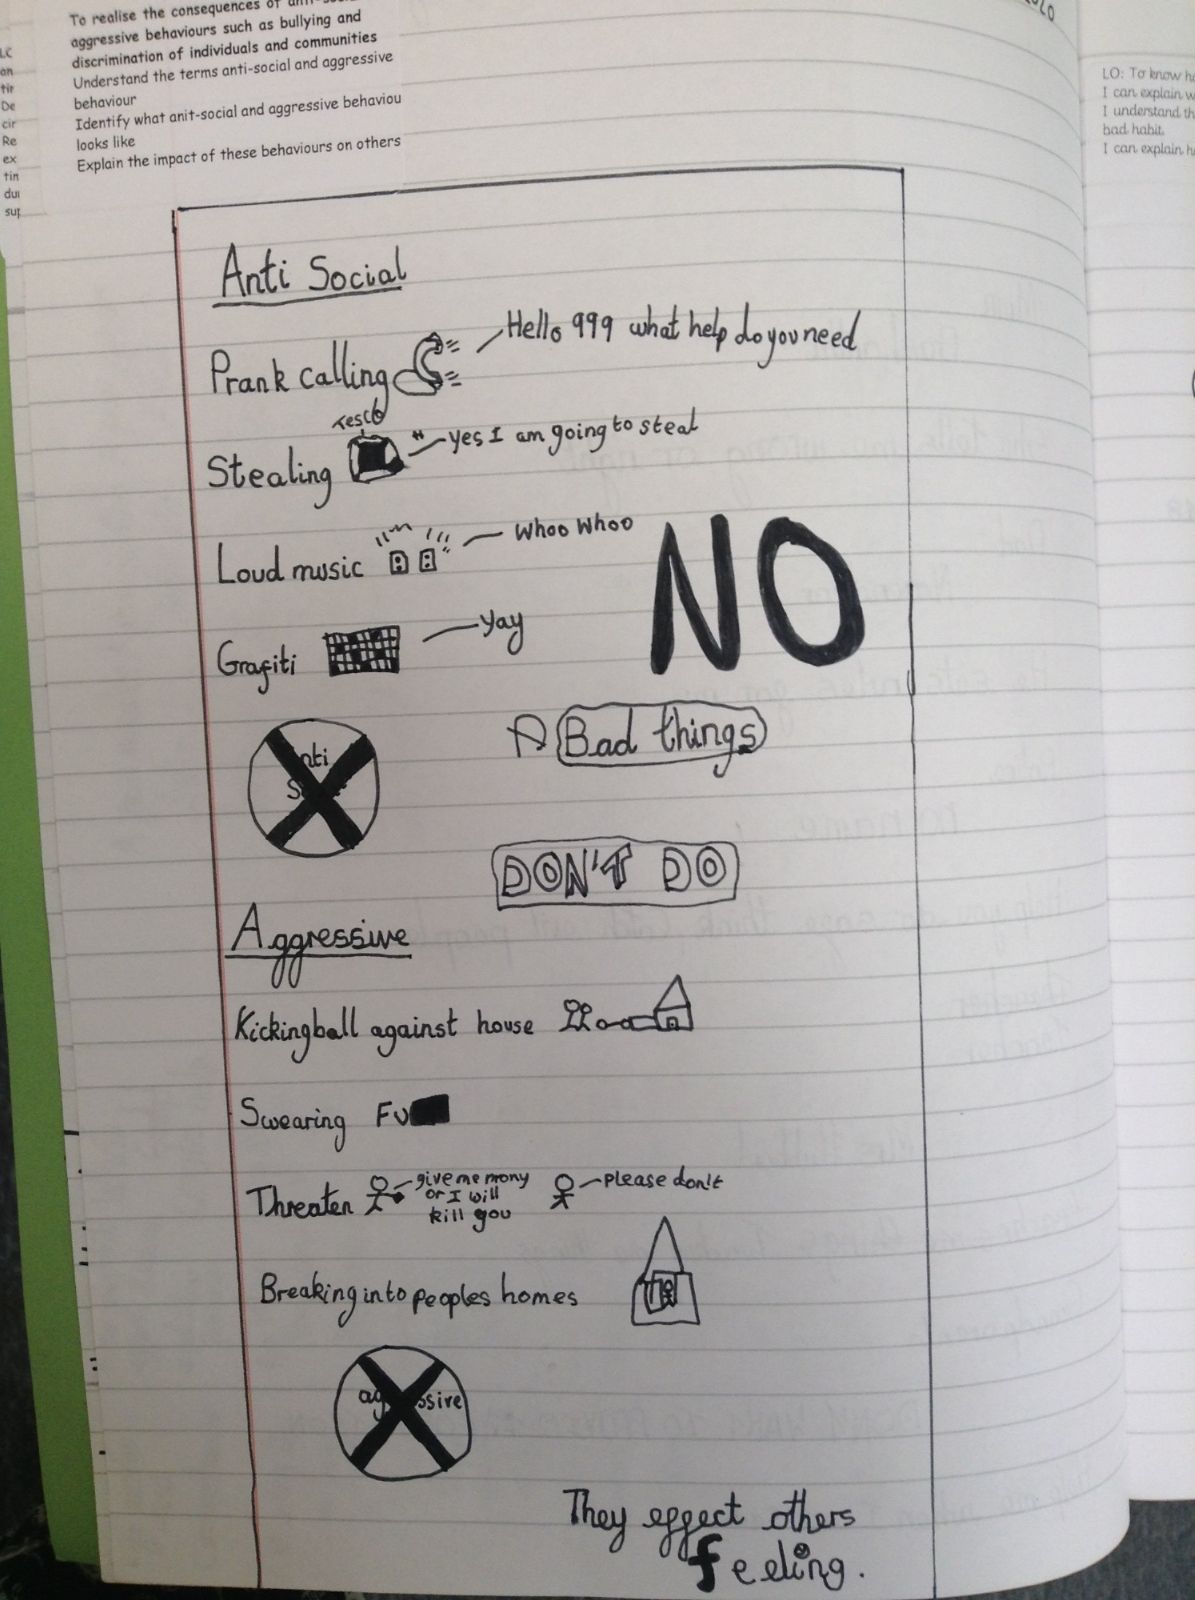 To realise the consequences of anti-social
aggressive behaviours such as bullying and
discrimination of individuals and communities
Understand the terms anti-social and aggressive
behaviour
Identify what anit-social and aggressive behaviou
looks like
Explain the impact of these behaviours on others
LO: To know
I can explain
I understand
bad habit.
I can explain
Anti Social
Prank calling Hello 999 what help do you need
Tesco
Stealing yes I am going to steal
Loud music Whoo Whoo
Grafiti Yay
NO
Bad things
DON'T DO
Aggressive
Kicking ball against house
Swearing Fu
Threaten give me mony please don't
or I will
kill you
Breaking into peoples homes
They effect others
feeling.